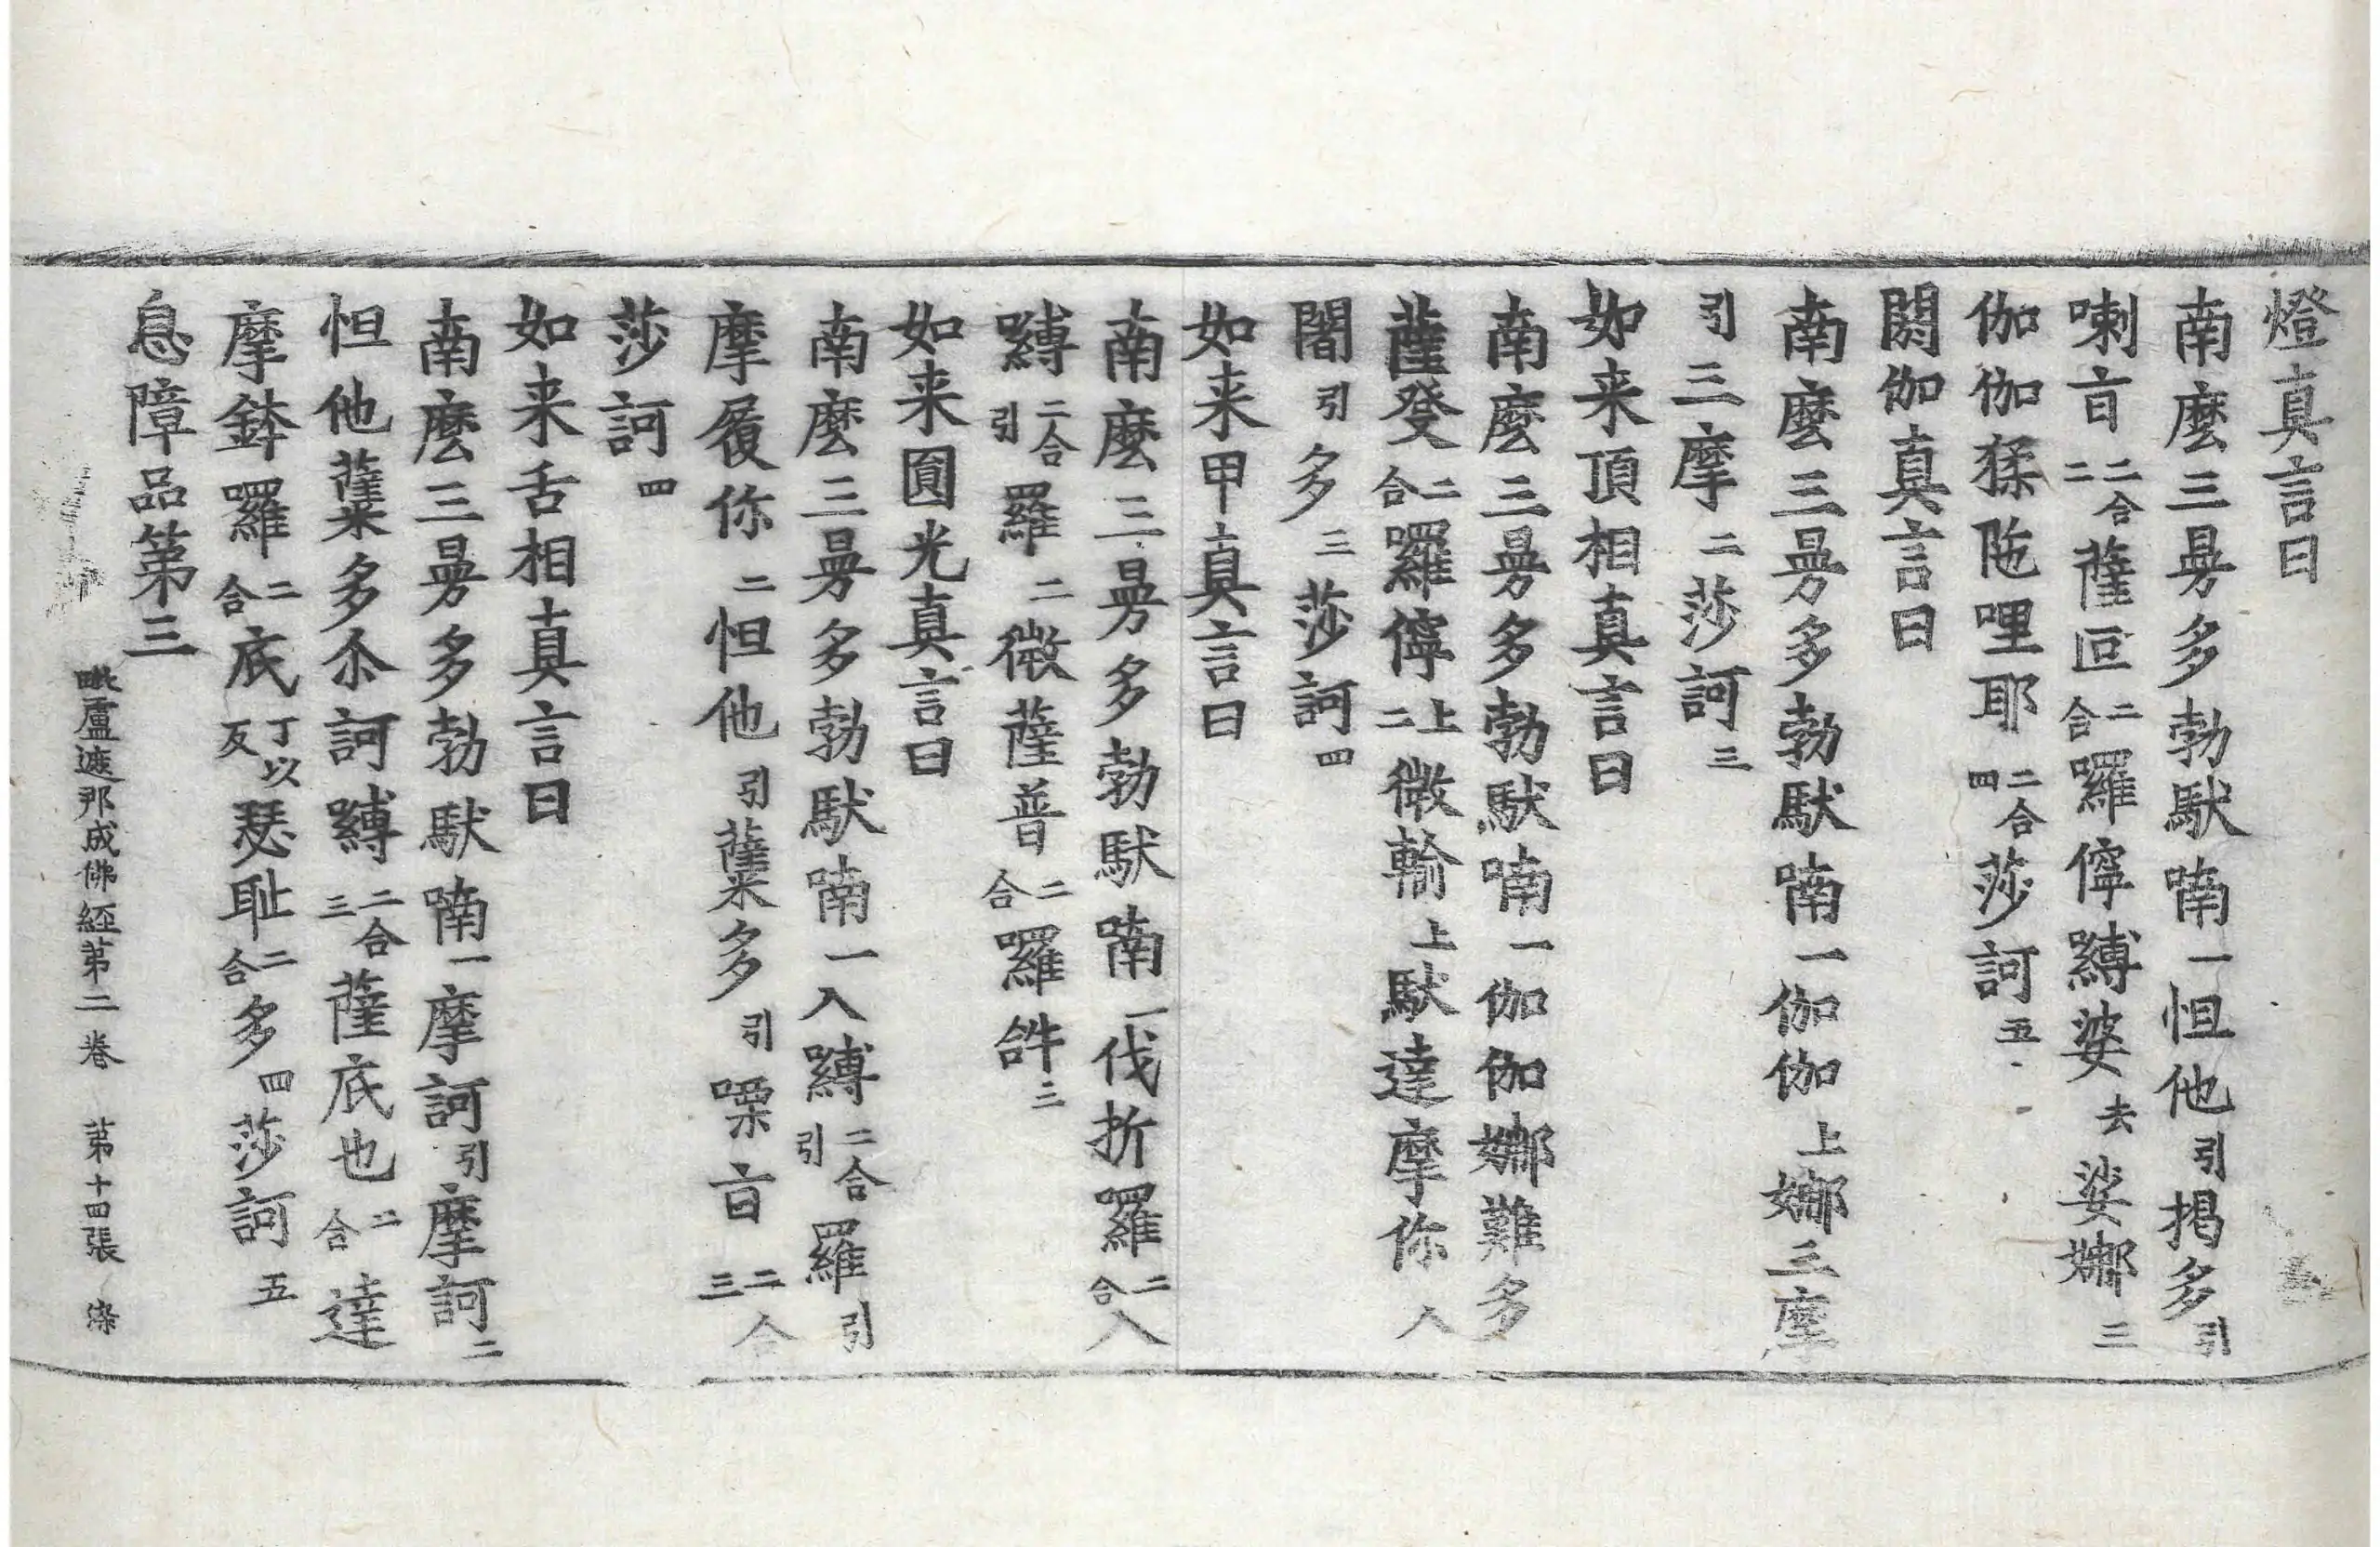 燈真言曰
南麼三曼多勃馱喃一怛他引揭多引
喇㫖二合二薩叵二合羅儜縛婆去娑娜三
伽伽猱陁哩耶二合四莎訶五
閼伽真言曰
南麼三曼多勃馱喃一伽伽上娜三摩
引三摩二莎訶三
如来頂相真言曰
南麼三曼多勃馱喃一伽伽娜難多
薩發二合囉儜上二微輸上馱達摩你入
闍引多三莎訶四
如来甲真言曰
南麼三曼多勃馱喃一伐折羅二合入
縛二合引羅二微薩普二合囉𤙖三
如来圓光真言曰
南麼三曼多勃馱喃一入縛二合引羅引
摩履你二怛他引蘖多引㗚㫖二合三
莎訶四
如来舌相真言曰
南麼三曼多勃馱喃一摩訶引摩訶二
怛他蘖多尒訶縛二合三薩底也二合達
摩鉢囉二合底丁以反瑟耻二合多四莎訶五
息障品第三
毗盧遮那成佛經第二卷 第十四張 染